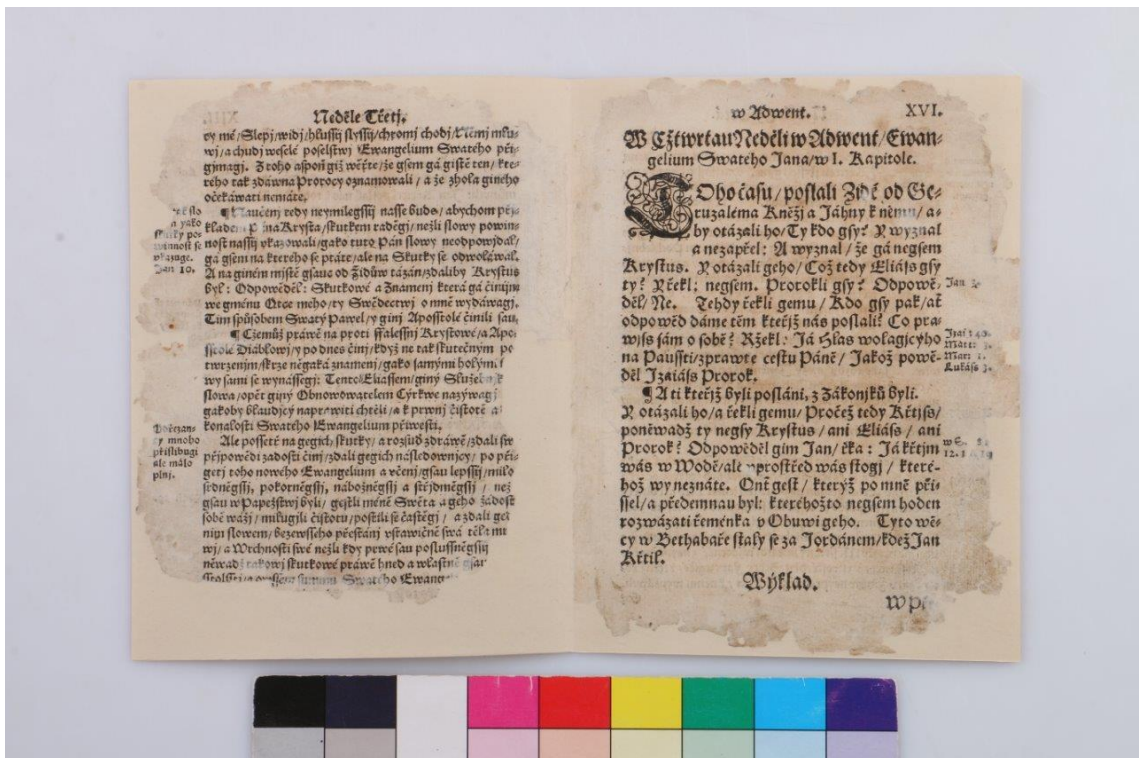 Neděle Třetj.
ry mé/Slepj/widj/hlussij slyssij/chromj chodj/Němj mlu-
wj/a chudj weselé poselstwj Ewangelium Swatého při-
gjmagj. Z toho aspoň giž wěřte/že gsem gá gistě ten/kte-
rého tak zdáwna Prorocy oznamowali/a že zhola giného
očekáwati nemáte.
¶ Naučeni tedy neymilegssij nasse budo/abychom
kladem Pána Krysta/skutkem raděgj/nežli slowy powin-
nost nassij vkazowali/gako tuto Pán slowy neodpowjdal/
gá gsem na kterého se ptáte/ale na Skutky se odwoláwal.
A na giném místě gsauc od Židůw tázán/zdaliby Krystus
byl: Odpowěděl: Skutkowé a Znamenj která gá činijm
we gménu Otce mého/ty Swědectwj o mně wydáwagj.
Tim spůsobem Swatý Pawel/y ginj Aposstolé činili sau.
slo
a yako
skutky po-
winnost se
vkazuge.
Jan 10.
¶ Čemuž práwě na proti ffalessnj Krystowé/a Apo-
sstolé Diáblowj/y po dnes činj/když ne tak skutečným po
twrzenjm/skrze něgaká znamenj/gako samými holými
wy sami se wynássegj: Tento Eliassem/giný Služeb
slowa/opět giný Obnowowatelem Cýrkwe nazýwagj
gakoby blaudjcý naprawiti chtěli/a k prwnj čistotě a
konalosti Swatého Ewangelium přiwesti.
Ale possetř na gegich skutky/a rozsuď zdráwě/zdali swé
přjpowědi zadosti činj/zdali gegich následownjcy/po při-
getj toho nowého Ewangelium a včenj/gsau lepssij/milo
srdněgssij, pokorněgssij, nábožněgssij a střjdměgssij / než
gsau w Papežstwj byli/ gestli méně Swěta a geho žádost
sobě wážj/milugjli čistotu/postili se častěgj / a zdali
njm slowem/bezewsseho přestánj vstawičně swá těla
wj/a Wrchnosti swé nežli kdy prwé sau poslussněgssij
něwadž takowj skutkowé práwě hned a wlastně
Swatého Ewang
mnoho
přislibugj
ale málo
plnj.
w Adwent. XVI.
W Cžtwrtau Neděli w Adwent/Ewan-
gelium Swatého Jana/w I. Kapitole.
TOho času/poslali Židé od Ge-
ruzaléma Kněžj a Jáhny k němu/a-
by otázali ho/Ty kdo gsy? Y wyznal
a nezapřel: A wyznal/že gá negsem
Krystus. Y otázali geho/Což tedy Eliáss gsy
ty? Y řekl; negsem. Prorokli gsy? Odpowě-
děl/Ne. Tehdy řekli gemu/Kdo gsy pak/ať
odpowěd dáme těm kteřjž nás poslali? Co pra-
wjss sám o sobě? Ržekl: Já Hlas wolagjcýho
na Paussti/zprawte cestu Páně/Jakož powě-
děl Jzaiáss Prorok.
Jan
Jzai: 40.
Matt: 3.
Mar: 1.
Lukáss 3.
¶ A ti kteřjž byli posláni, z Zákonjků byli.
Y otázali ho/a řekli gemu/Pročež tedy Křtjss/
poněwadž ty negsy Krystus / ani Eliáss / ani
Prorok? Odpowěděl gim Jan/řka: Já křtjm
wás w Wodě/ale vprostřed wás stogj / které-
hož wy neznáte. Onť gest/kterýž po mně při-
ssel/a předemnau byl: kteréhožto negsem hoden
rozwázati řeménka v Obuwi geho. Tyto wě-
cy w Bethabaře staly se za Jordánem/kdež Jan
Křtil.
Weyklad.